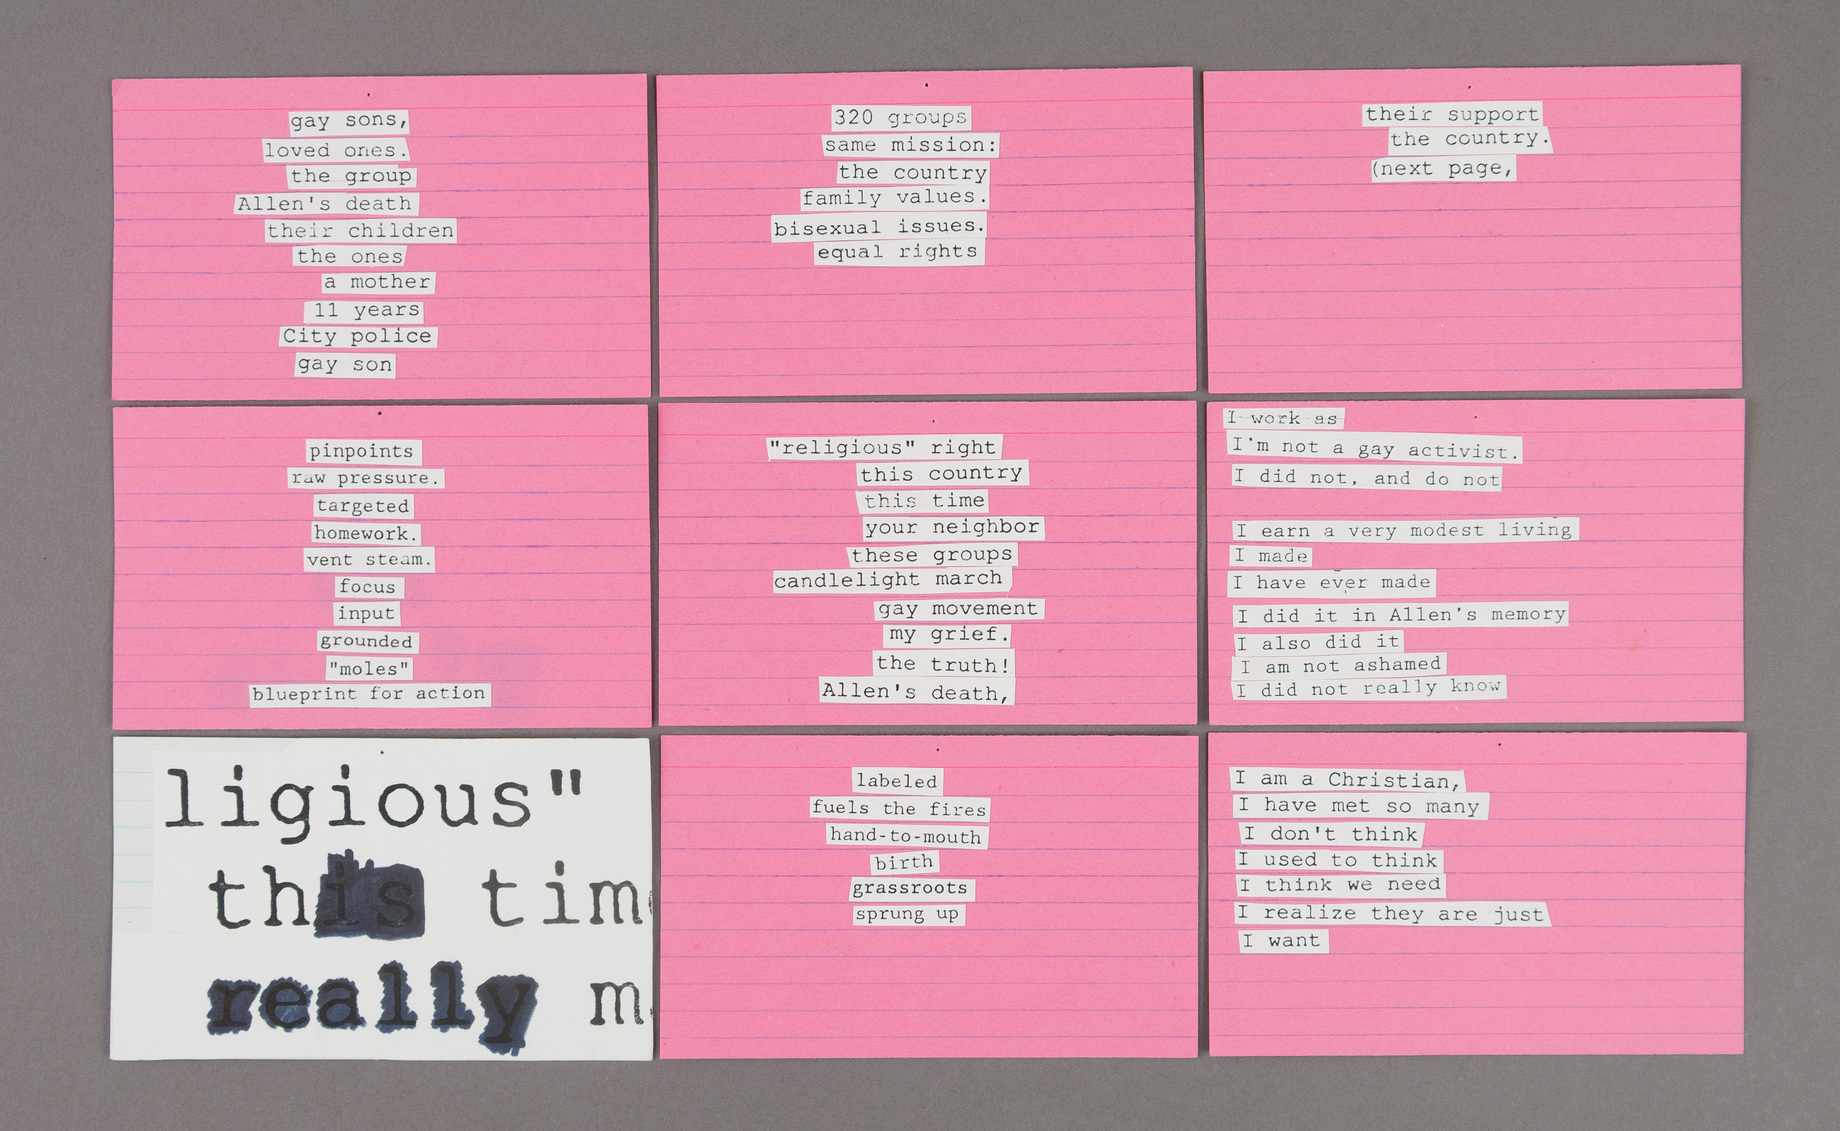 gay sons,
loved ones.
the group
Allen's death
their children
the ones
a mother
11 years
City police
gay son
320 groups
same mission:
the country
family values.
bisexual issues.
equal rights
their support
the country.
(next page,
pinpoints
raw pressure.
targeted
homework.
vent steam.
focus
input
grounded
"moles"
blueprint for action
"religious" right
this country
this time
your neighbor
these groups
candlelight march
gay movement
my grief.
the truth!
Allen's death,
I work as
I'm not a gay activist.
I did not, and do not
I earn a very modest living
I made
I have ever made
I did it in Allen's memory
I also did it
I am not ashamed
I did not really know
ligious"
this tim
really m
labeled
fuels the fires
hand-to-mouth
birth
grassroots
sprung up
I am a Christian,
I have met so many
I don't think
I used to think
I think we need
I realize they are just
I want